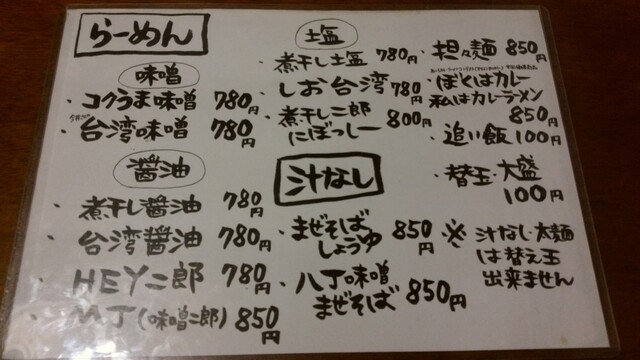 らーめん
味噌
・コクうま味噌 780円
・台湾味噌 780円
醤油
・煮干し醤油 780円
・台湾醤油 780円
・HEY二郎 780円
・MJ(味噌二郎) 850円
塩
・煮干し塩 780円
・しお台湾 780円
・煮干し二郎
にぼっしー 800円
汁なし
・まぜそば
しょうゆ 850円
・八丁味噌
まぜそば 850円
・担々麺 850円
・ぼくはカレー
私はカレーラーメン
850円
・追い飯 100円
・替玉・大盛
100円
※ 汁なし・太麺
は替え玉
出来ません